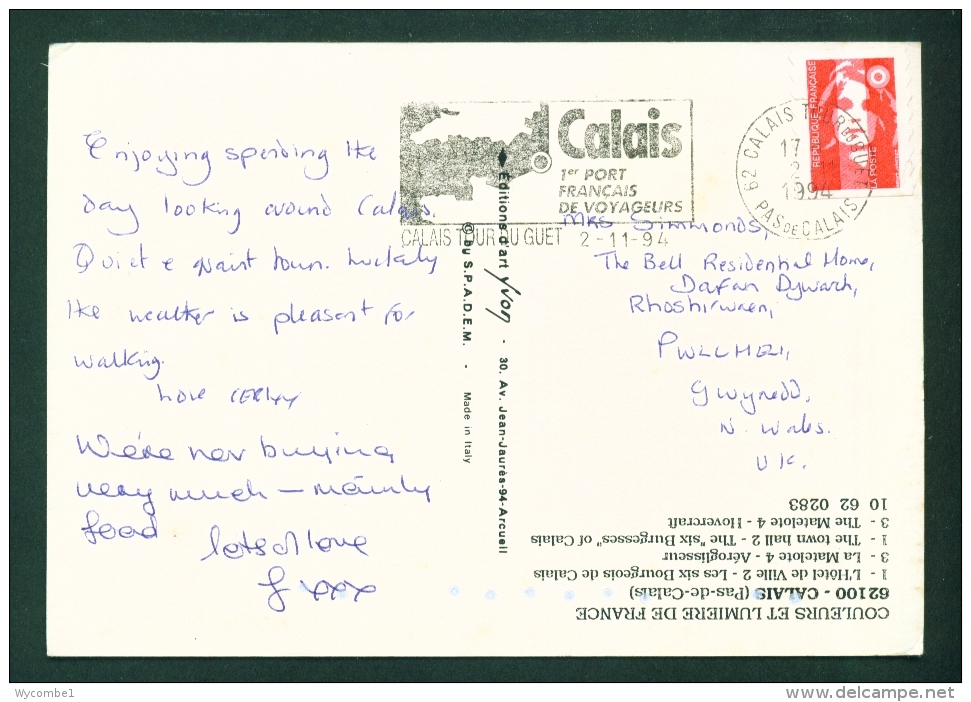 Enjoying spending the
day looking around Calais.
Quiet & quaint town. Luckily
the weather is pleasent for
walking.
Love
We're not buying
very much — mainly
food
lots of love
xxx
Calais
1er PORT
FRANÇAIS
DE VOYAGEURS
CALAIS TOUR DU GUET 2-11-94
62 CALAIS TOUR DU GUET
17
2
1994
PAS DE CALAIS
REPUBLIQUE FRANÇAISE
LA POSTE
Mrs Simmonds,
The Bell Residential Home,
Dafan Dywarch,
Rhoshirwaen,
PWLLHELI,
Gwynedd,
N. Wales.
UK.
Éditions d'art Yvon - 30, Av. Jean-Jaurès-94-Arcueil
© by S.P.A.D.E.M. - Made in Italy
COULEURS ET LUMIERE DE FRANCE
62100 - CALAIS (Pas-de-Calais)
1 - L'Hôtel de Ville 2 - Les six Bourgeois de Calais
3 - La Matelote 4 - Aéroglisseur
1 - The town hall 2 - The "six Burgesses" of Calais
3 - The Matelote 4 - Hovercraft
10 62 0283
Wycombe1
delcampe.net